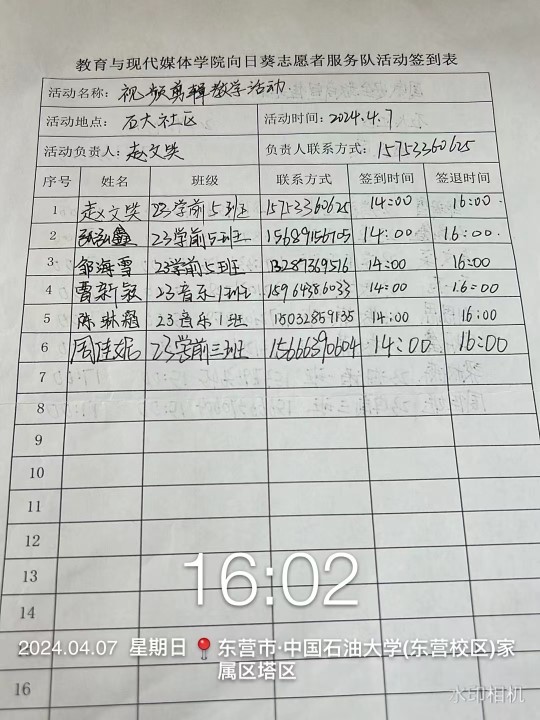 教育与现代媒体学院向日葵志愿者服务队活动签到表
活动名称: 视频剪辑教学活动
活动地点: 石大社区 活动时间: 2024.4.7
活动负责人: 赵文 负责人联系方式: 15753360625
序号 姓名 班级 联系方式 签到时间 签退时间
1 赵文 23学前5班 15753360625 14:00 16:00
2 23学前5班 15689156705 14:00 16:00
3 邹海雪 23学前5班 13287369516 14:00 16:00
4 曹新颖 23音乐1班 15964386033 14:00 16:00
5 陈琳 23音乐1班 15032859135 14:00 16:00
6 周佳妮 23学前三班 15666390604 14:00 16:00
7
8
9
10
11
12
13
14
16
16:02
2024.04.07 星期日 东营市·中国石油大学(东营校区)家
属区塔区
水印相机